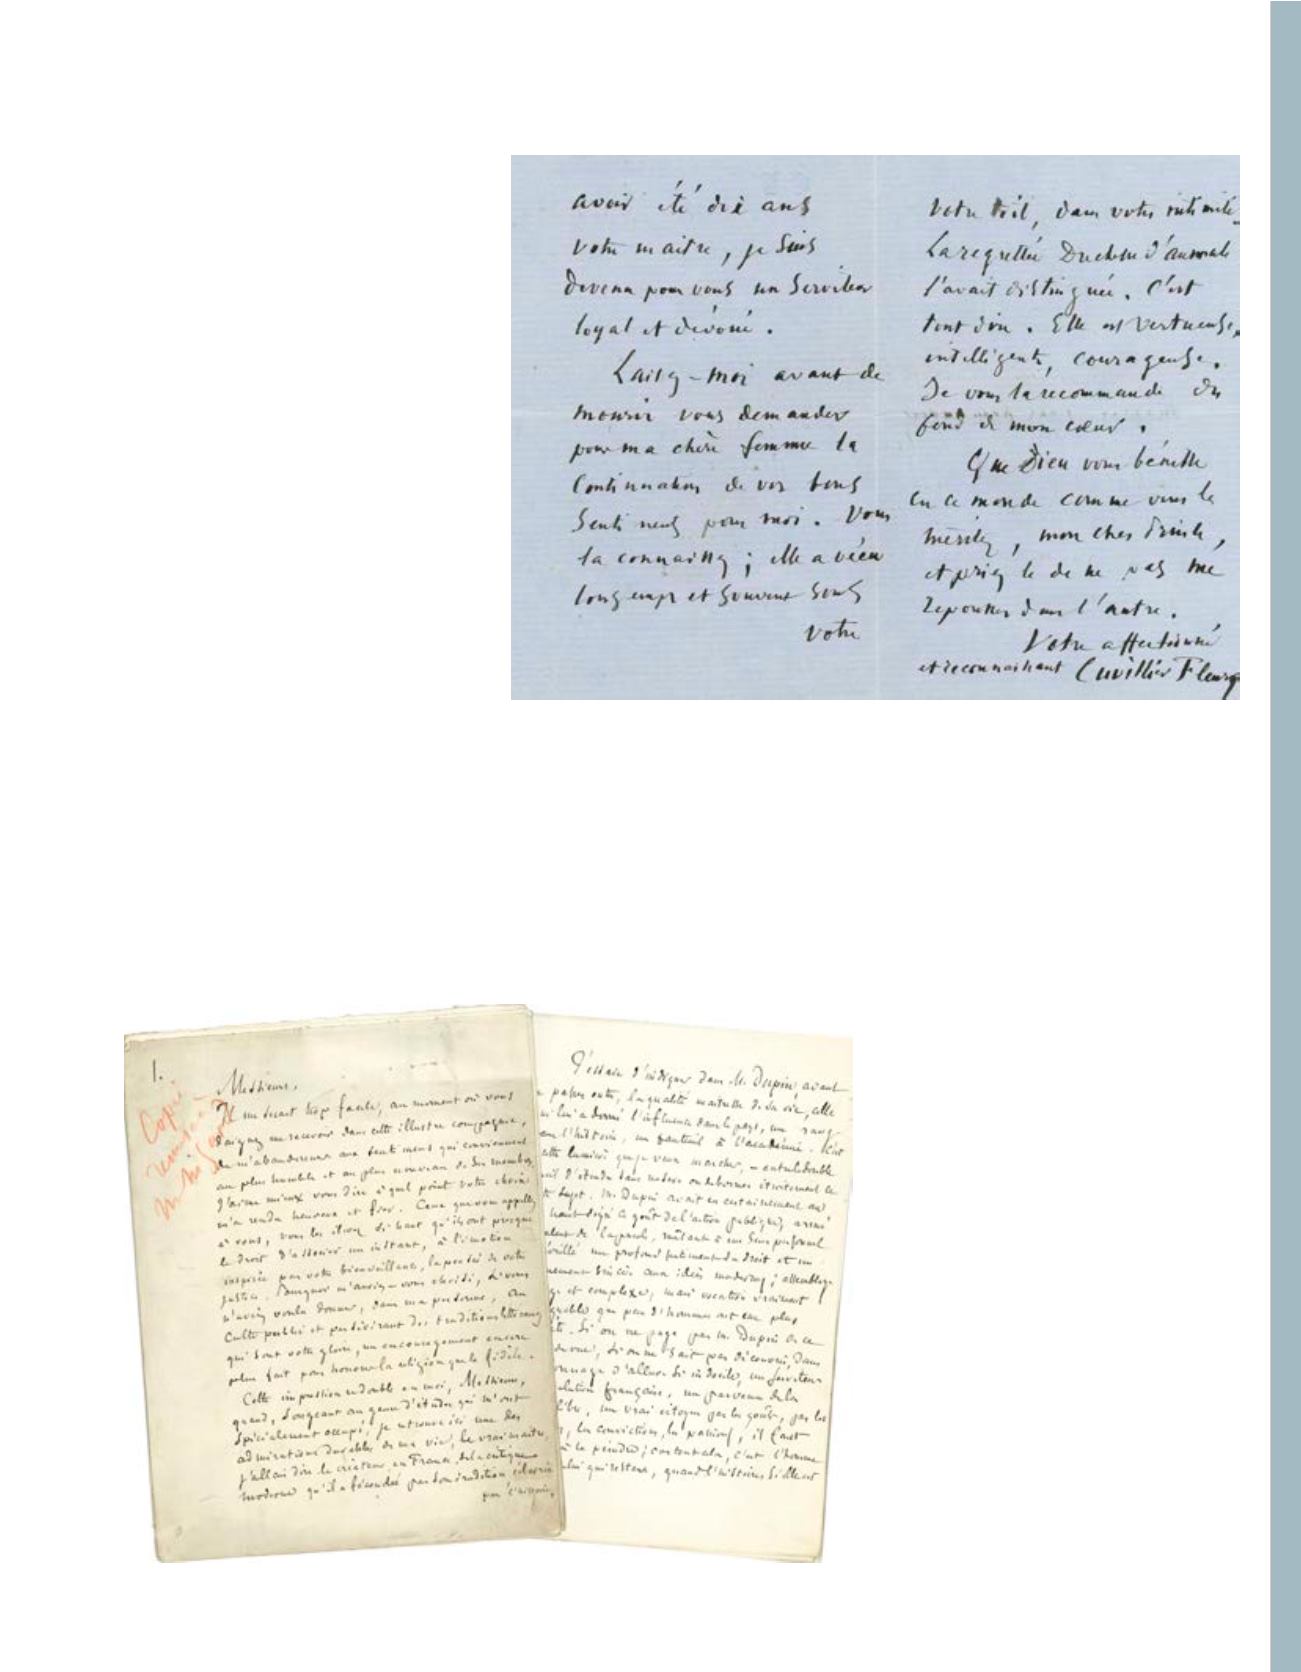 avoir été dix ans
votre maitre, je suis
devenu pour vous un serviteur
loyal et dévoué.
Laissez-moi avant de
mourir vous demander
pour ma chère femme la
continuation de vos bons
sentimens pour moi. Vous
la connaissez ; elle a vécu
longtemps et souvent sous
votre
votre toit, dans votre intimité.
La regrettée Duchesse d'aumale
l'avait distinguée. C'est
tout dire. Elle est vertueuse,
intelligente, courageuse.
Je vous la recommande du
fond de mon cœur.
Que Dieu vous bénisse
en ce monde comme vous le
méritez, mon cher Prince,
et priez le de ne pas me
repousser dans l'autre.
Votre affectionné
et reconnaissant Cuvillier Fleury
1.
Copie
remise à
Messieurs,
Il me serait trop facile, au moment où vous
daignez me recevoir dans cette illustre compagnie,
de m'abandonner aux sentimens qui conviennent
au plus humble et au plus nouveau de ses membres.
J'aime mieux vous dire à quel point votre choix
m'a rendu heureux et fier. Ceux que vous appellez
à vous, vous les élevez si haut qu'ils ont presque
le droit d'associer un instant, à l'émotion
inspirée par votre bienveillance, la pensée de votre
justice. Pourquoi m'auriez-vous choisi, si vous
n'aviez voulu donner, dans ma personne, au
culte public et persévérant des traditions littéraires
qui sont votre gloire, un encouragement encore
plus fait pour honorer la religion que le fidèle.
Cette impression redouble en moi, Messieurs,
quand, songeant au genre d'études qui m'ont
spécialement occupé, je retrouve ici une des
admirations durables de ma vie, le vrai maitre,
j'allais dire le créateur, en France, de la critique
moderne qu'il a fécondée par son érudition
par l'histoire,
J'essaie d'indiquer dans M. Dupin, avant
passer outre, la qualité maitresse de sa vie, celle
qui lui a donné l'influence dans le pays, un rang
l'histoire, un fauteuil à l'académie. C'est
cette lumière que je veux marcher, – entre le double
d'étendre sans mesure ou de borner étroitement le
sujet. M. Dupin avait eu certainement au
haut degré ce goût de l'action publique,
de la parole, mêlant à un sens personnel
un profond sentiment du droit et un
sincère aux idées modernes ; assemblage
et complexe, mais vocation vraiment
que peu d'hommes ont eue plus
Si on ne juge pas M. Dupin de ce
si on ne sait pas découvrir, dans
d'allure si indocile, un serviteur
française, un parvenu de la
un vrai citoyen par les goûts, par les
les convictions, les passions, il faut
le peindre ; car tout cela, c'est l'homme
qui restera, quand l'histoire